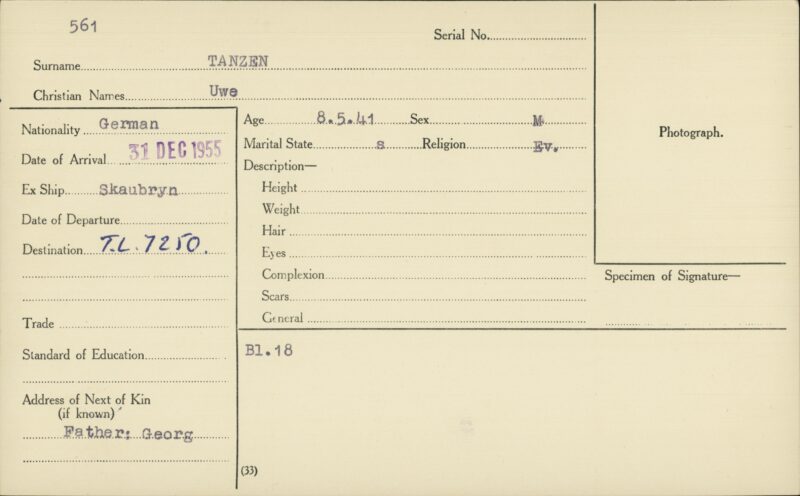 561
Serial No.
Surname TANZEN
Christian Names Uwe
Nationality German
Date of Arrival 31 DEC 1955
Ex Ship Skaubryn
Date of Departure
Destination T.L. 7250.
Trade
Standard of Education
Address of Next of Kin
(if known)
Father: Georg
Age 8.5.41 Sex M
Marital State s Religion Ev.
Description—
Height
Weight
Hair
Eyes
Complexion
Scars
General
Bl.18
(33)
Photograph.
Specimen of Signature—